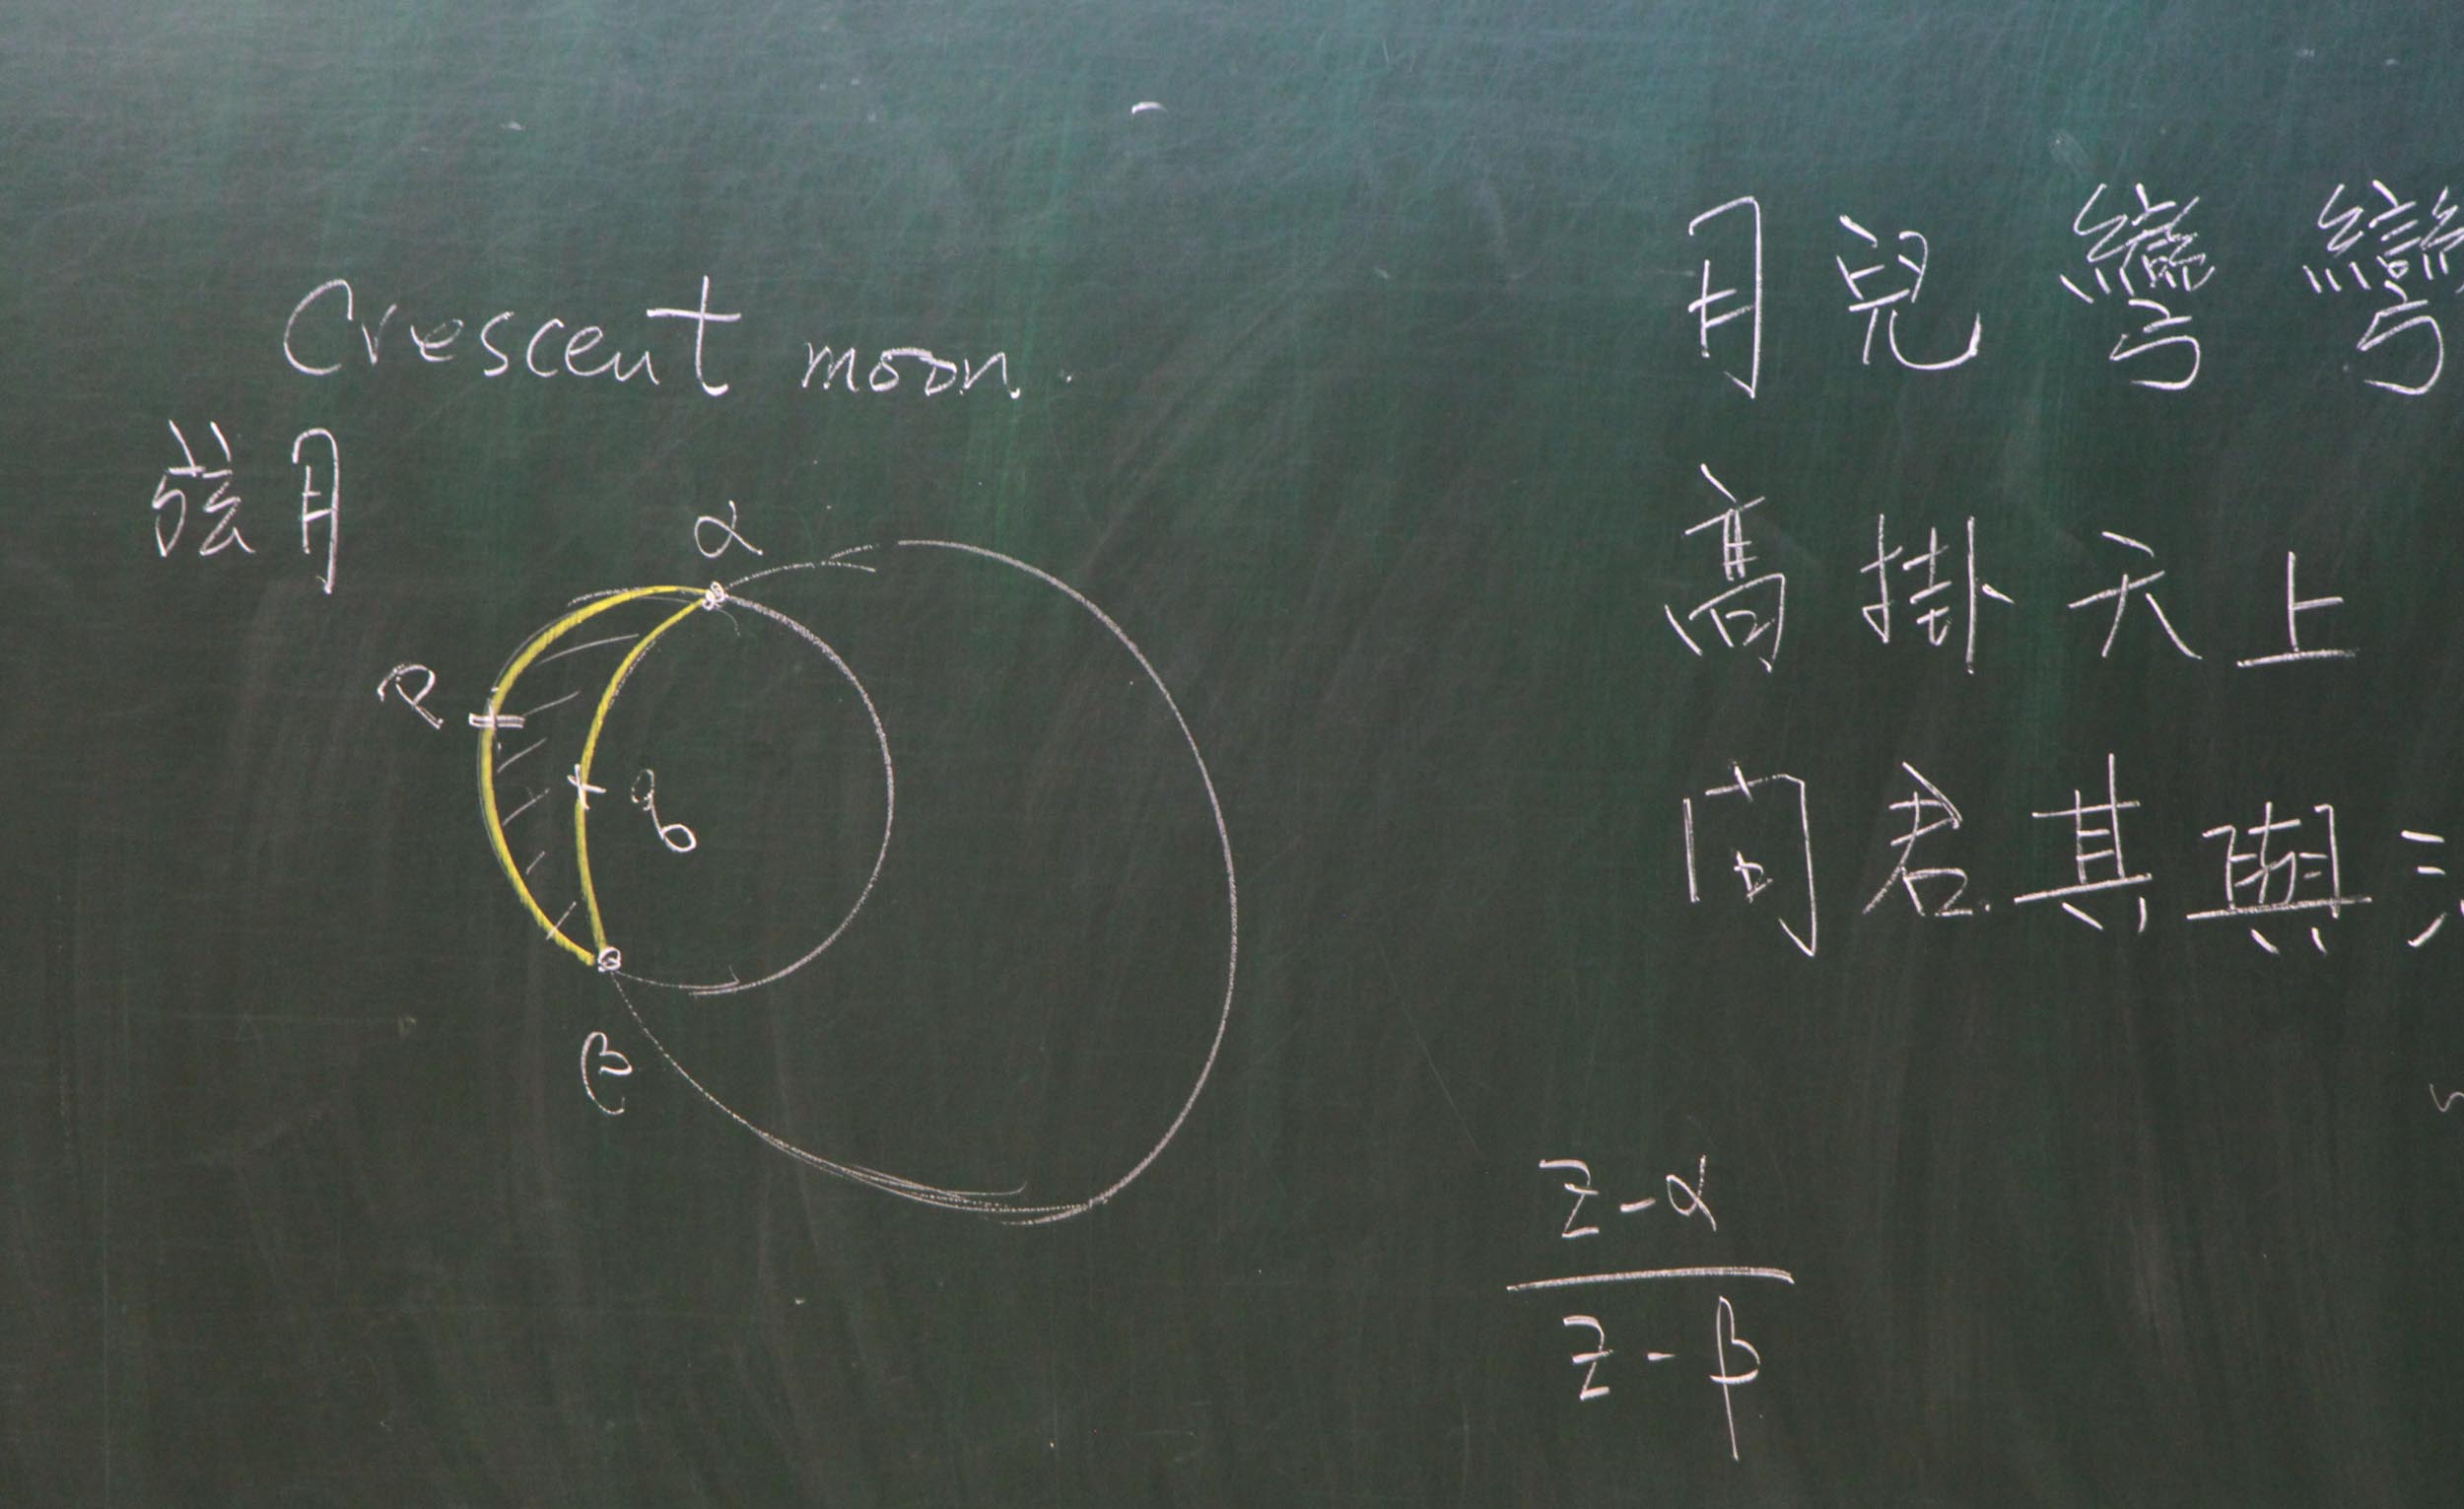 Crescent moon.
弦月
α
P
q
β
月兒彎彎
高掛天上
问君其與
z-α
z-β